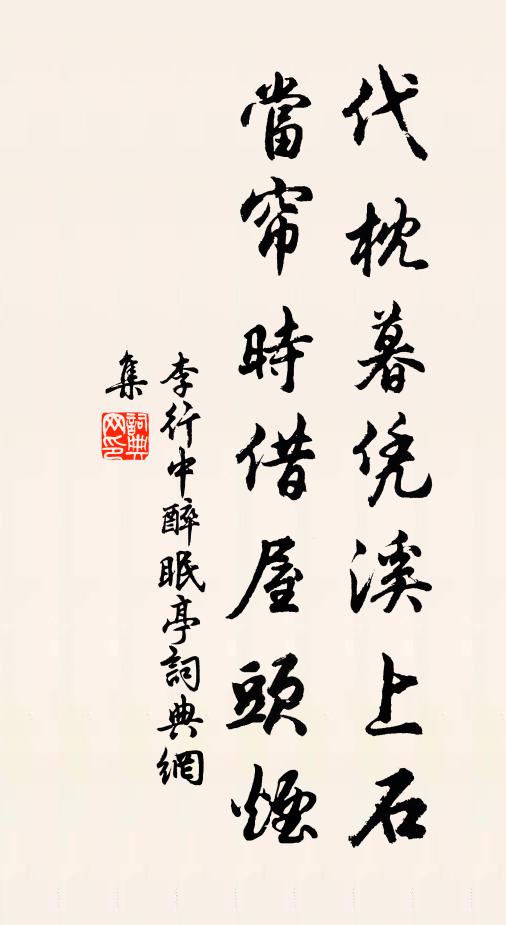 代枕暮凭溪上石
當帘時借屋頭煙
李行中醉眠亭詞典網
集
詞典網印